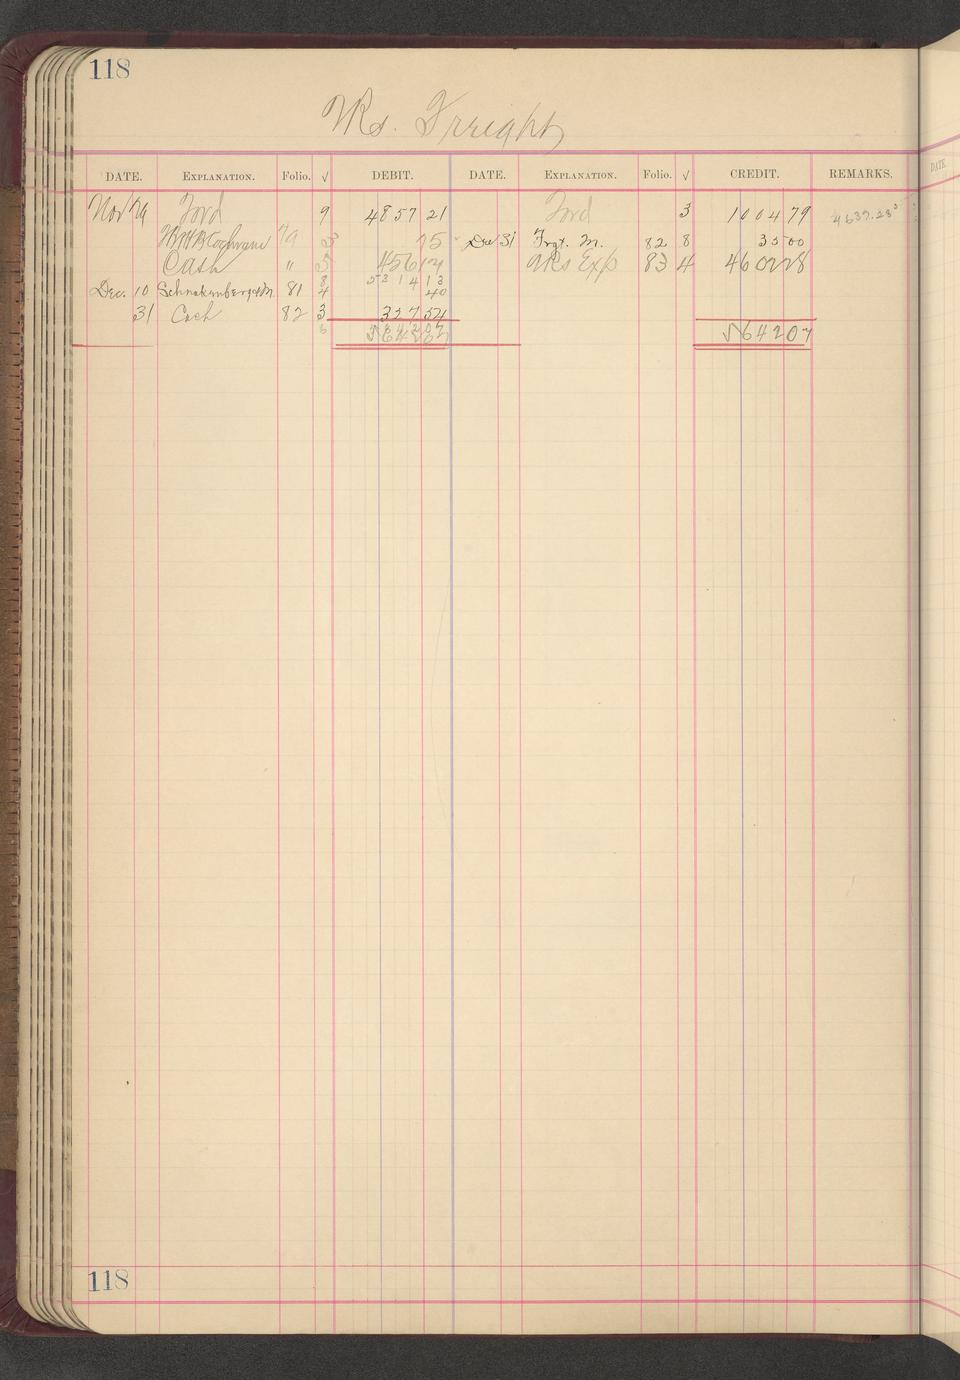 118
Mrs. Freight
DATE. EXPLANATION. Folio. √ DEBIT. DATE. EXPLANATION. Folio. √ CREDIT. REMARKS.
Nov 79 Ford 9 4857 21 Ford 3 1004 79 4637.28
Cochrane 79 3 75 Dec 31 Frgt. M. 82 8 35 00
Cash " 5 456 Exp 83 4 4602 28
5314 13
Dec. 10 81 4 40
31 Cash 82 3 327 54
5642 07 5642 07
118